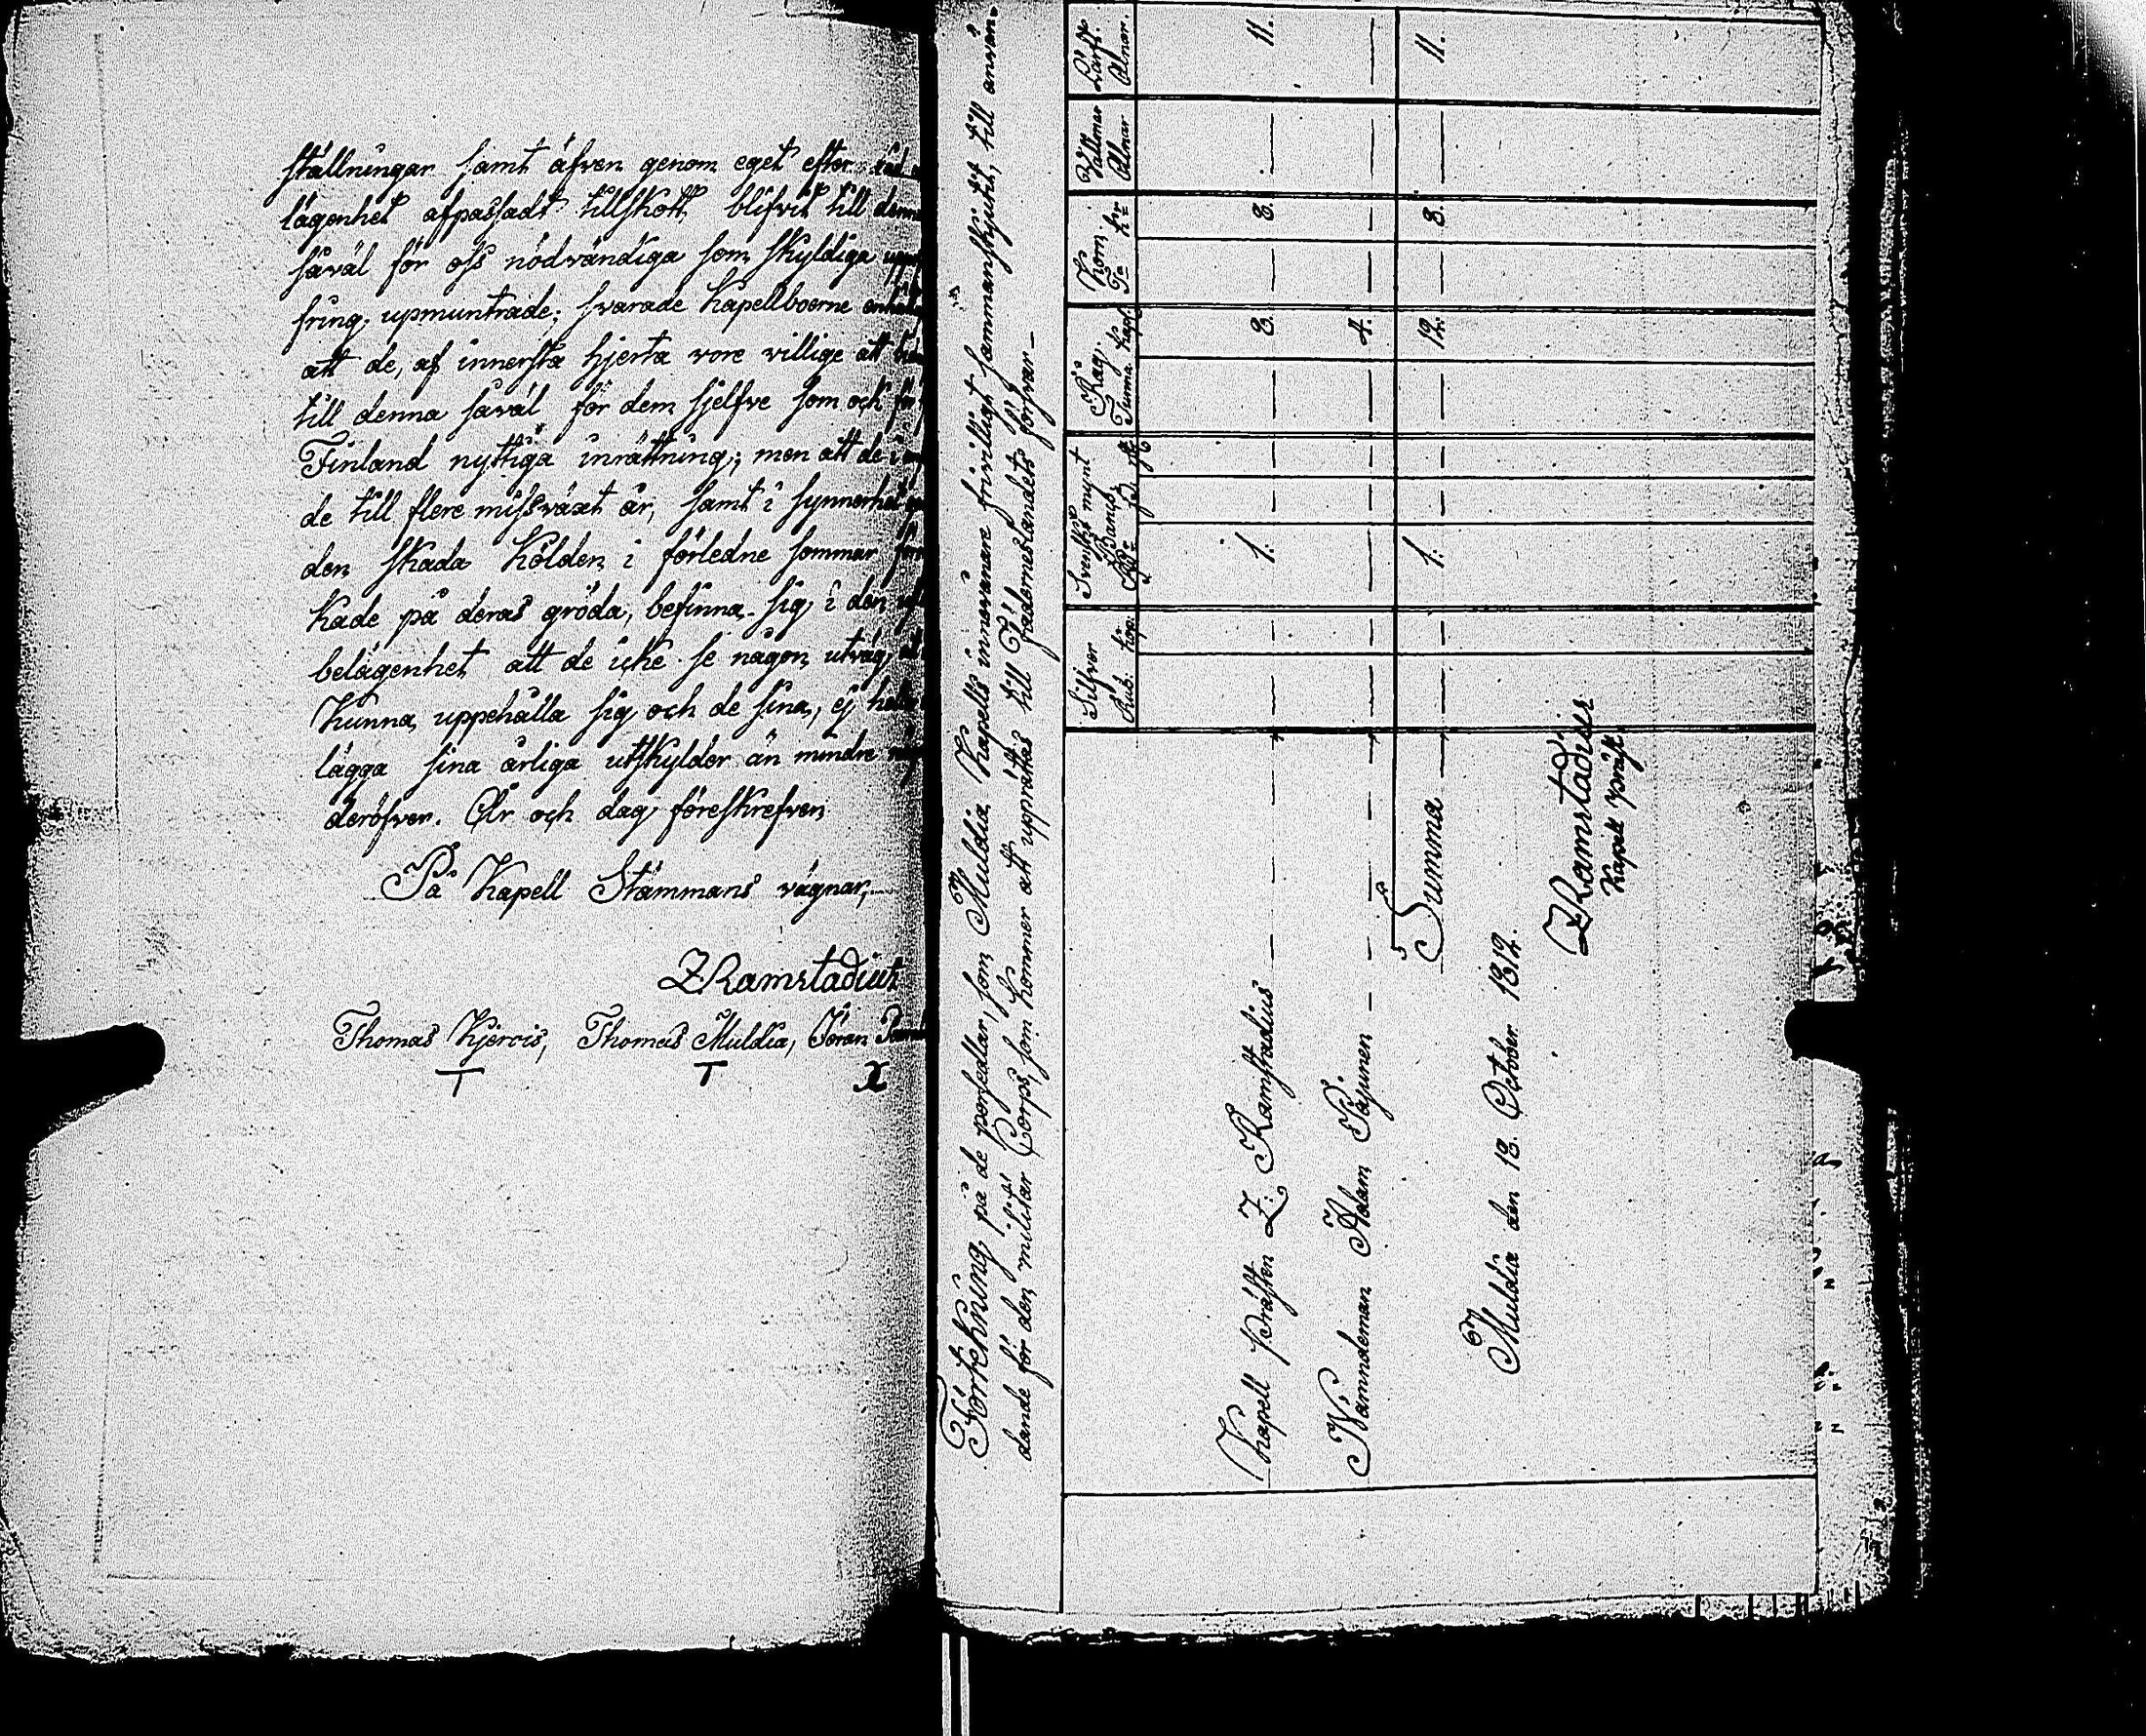 ställningar samt äfven genom eget efter råd
lägenhet afpassadt tillskott, blifvit till denna
såväl för oss nödvändiga som skyldiga
fring, upmuntrade; svarade Kapellboerne
att de, af innersta hjerta vore villige att
till denna såväl för dem sjelfve som och för
Finland nyttiga inrättning; men att de i
de till flere missväxt år, samt i synnerhet
den skada Kölden i förledne sommar
kade på deras gröda, befinna sig i den
belägenhet att de icke se någon utväg att
Kunna uppehålla sig och de sina, ej heller
lägga sina årliga utskylder än mindre
deröfver. År och dag föreskrefven
På Kapell Stämmans vägnar,
Z Ramstadius
Thomas Kjervis, Thomas Muldia, Jöran
T T X
Förtekning på de persedlar, som Muldia Kapells innevånare frivilligt sammanskjutit, till använ-
dande för den militär Corps, som kommer att upprättas till Fäderneslandets försvar
Silfver Svenskt mynt Råg. Korn. Vallmar Lärft.
Banco
Rub. kop. Rd. sk. Tunna kapr. Ta kr Alnar Alnar.
Chapell Prästen Z. Ramstadius — — — — 1. — — — 8. — 8. — 11.
Nämndeman Adam Påjunen — — — — — — — — 4. — — — —
Summa — — — 1. — — — 12. — 8. — 11.
Muldia den 18. October 1812.
Z Ramstadius
Kapell präst